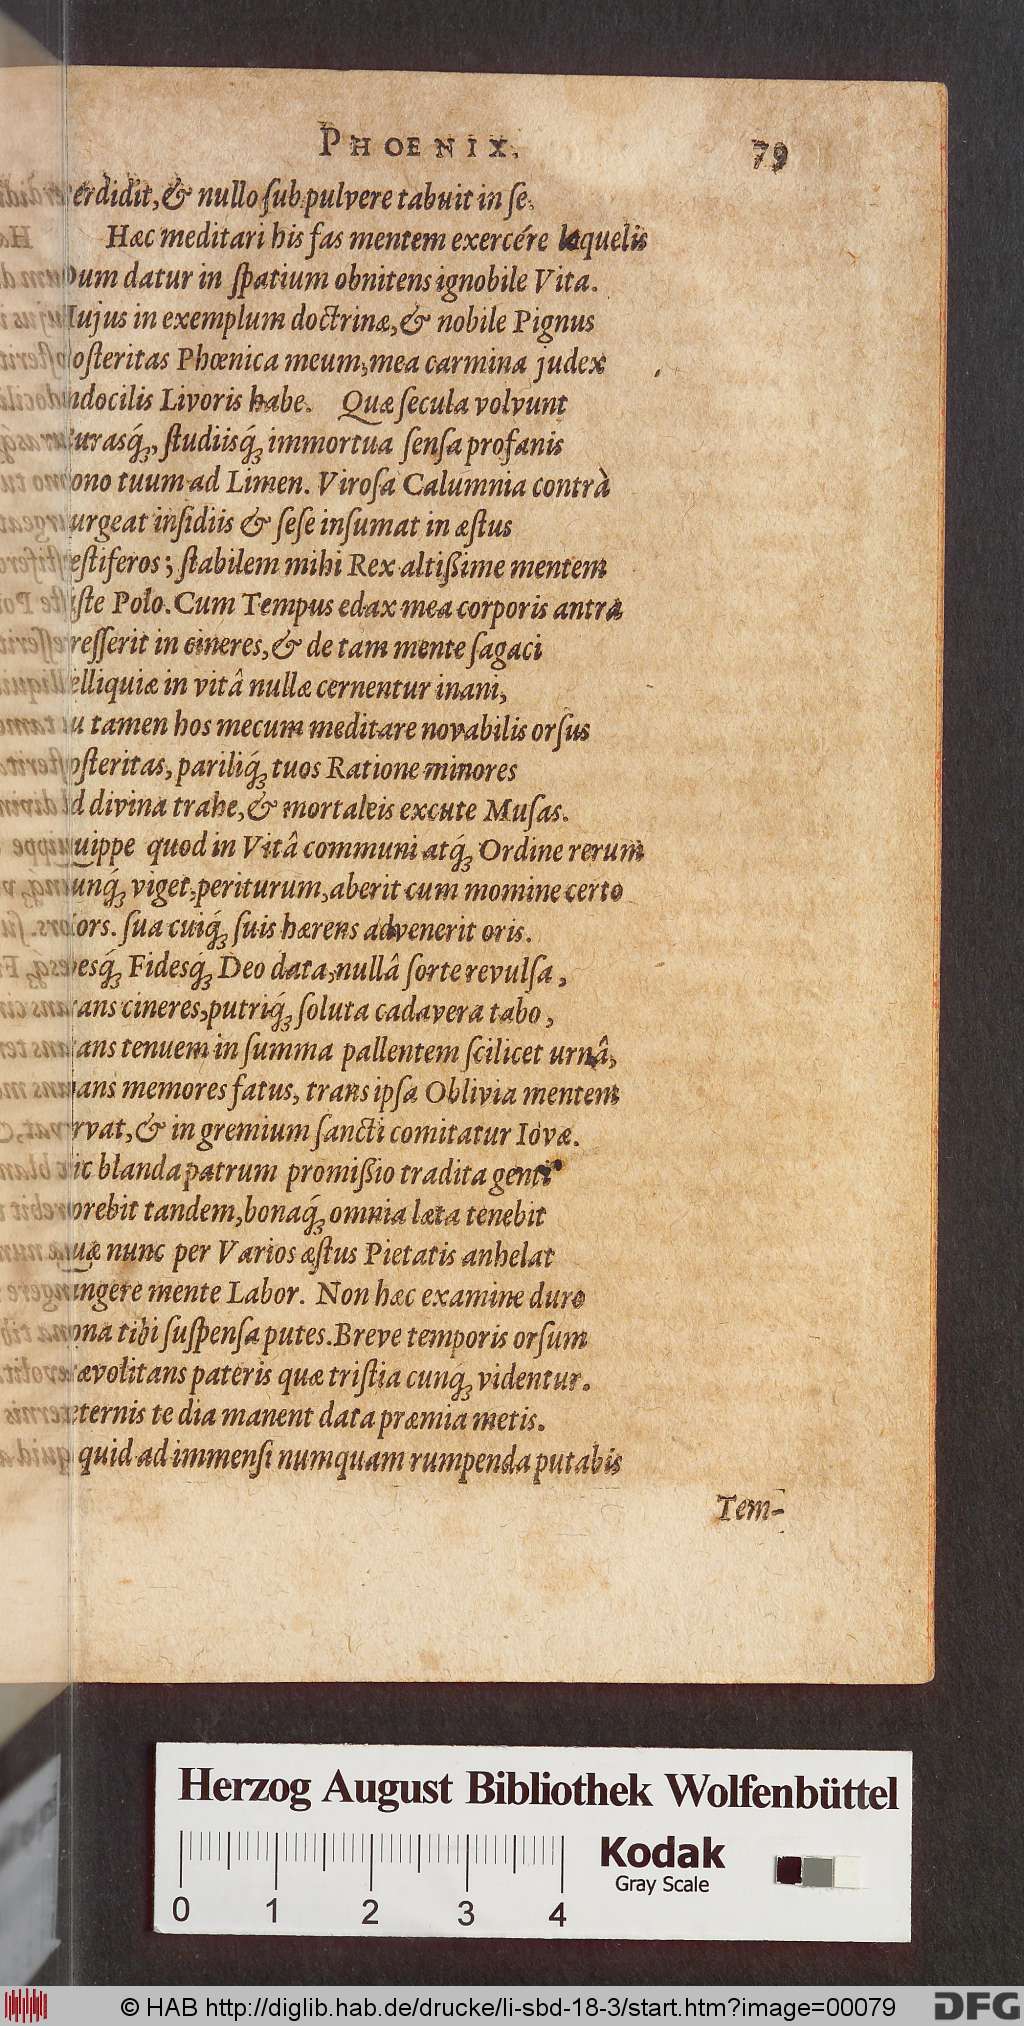 PHOENIX. 79
erdidit, & nullo sub pulvere tabuit in se.
Hæc meditari his fas mentem exercére loquelis
Dum datur in spatium obnitens ignobile Vita.
Hujus in exemplum doctrinæ, & nobile Pignus
osteritas Phœnica meum, mea carmina judex
ndocilis Livoris habe. Quæ secula volvunt
urasq́;, studiisq́; immortua sensa profanis
ono tuum ad Limen. Virosa Calumnia contrà
urgeat insidiis & sese insumat in æstus
estiferos; stabilem mihi Rex altißime mentem
iste Polo. Cum Tempus edax mea corporis antra
resserit in cineres, & de tam mente sagaci
elliquiæ in vitâ nullæ cernentur inani,
u tamen hos mecum meditare novabilis orsus
osteritas, pariliq́; tuos Ratione minores
d divina trahe, & mortaleis excute Musas.
uippe quod in Vitâ communi atq́; Ordine rerum
unq́; viget, periturum, aberit cum momine certo
ors. sua cuiq́; suis hærens advenerit oris.
pesq́; Fidesq́; Deo data, nullâ sorte revulsa,
rans cineres, putriq́; soluta cadavera tabo,
rans tenuem in summa pallentem scilicet urnâ,
rans memores fatus, trans ipsa Oblivia mentem
rvat, & in gremium sancti comitatur Iovæ.
ic blanda patrum promißio tradita genti
orebit tandem, bonaq́; omnia læta tenebit
uæ nunc per Varios æstus Pietatis anhelat
ngere mente Labor. Non hæc examine duro
ona tibi suspensa putes. Breve temporis orsum
ævolitans pateris quæ tristia cunq́; videntur.
eternis te dia manent data præmia metis.
quid ad immensi numquam rumpenda putabis
Tem-
Herzog August Bibliothek Wolfenbüttel
Kodak
Gray Scale
0 1 2 3 4
© HAB http://diglib.hab.de/drucke/li-sbd-18-3/start.htm?image=00079
DFG